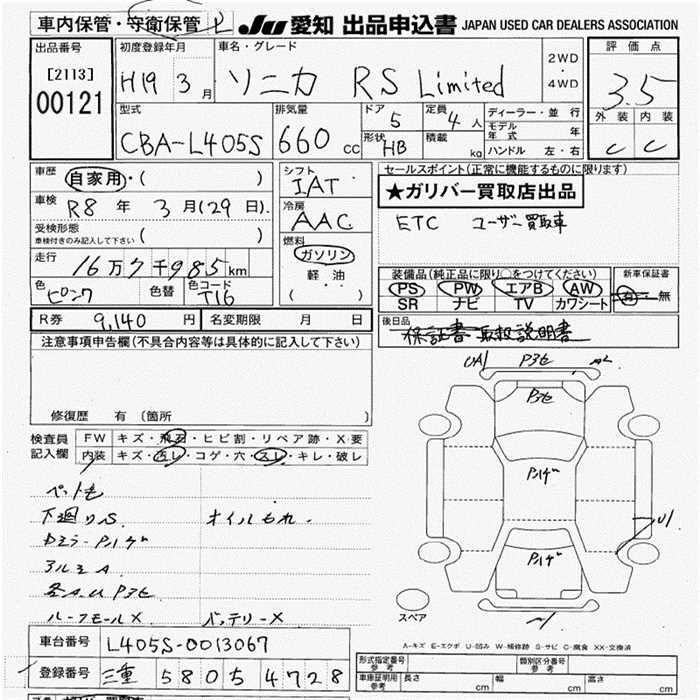 車内保管・守衛保管 JU 愛知 出品申込書 JAPAN USED CAR DEALERS ASSOCIATION
出品番号 初度登録年月 車名・グレード 評価点
[2113] H19 3月 ソニカ RS Limited 2WD・4WD 3.5
00121 外装 内装
型式 排気量 ドア 定員 ディーラー・並行
CBA-L405S 660cc 5 4人 モデル年式 年 C C
形状 HB 積載 kg ハンドル 左・右
車歴 自家用・( ) シフト IAT セールスポイント(正常に機能するものに限ります)
★ガリバー買取店出品
車検 R8年 3月(29日) 冷房 AAC ETC ユーザー買取車
受検形態 ( )
車検付きのみ記入して下さい
燃料 ガソリン
軽油
( ・ )
走行 16万7千985km 装備品(純正品に限り○をつけてください) 新車保証書
PS PW エアB AW 有・無
SR ナビ TV カワシート
色 ピンク 色替 色コード T16
R券 9,140円 名変期限 月 日 後日品
保証書 取扱説明書
注意事項申告欄(不具合内容等は具体的に記入して下さい)
UA1 P3セ AL
P3セ
修復歴 有(箇所
検査員 FW キズ・飛石・ヒビ割・リペア跡・X要
記入欄 内装 キズ・汚レ・コゲ・穴・スレ・キレ・破レ
ペット毛
下廻りS オイルもれ
Dミラー P ハゲ
アルミA
各AU P3セ
ルーフモールX バッテリーX
Pハゲ
Pハゲ
U1
スペア
A-キズ E-エクボ U-凹み W-補修跡 S-サビ C-腐食 XX-交換済
車台番号 L405S-0013067
登録番号 三重 580 5 4728
形式指定番号 参考 類別区分番号 参考
車庫証明用 参考 長さ cm 幅 cm 高さ cm